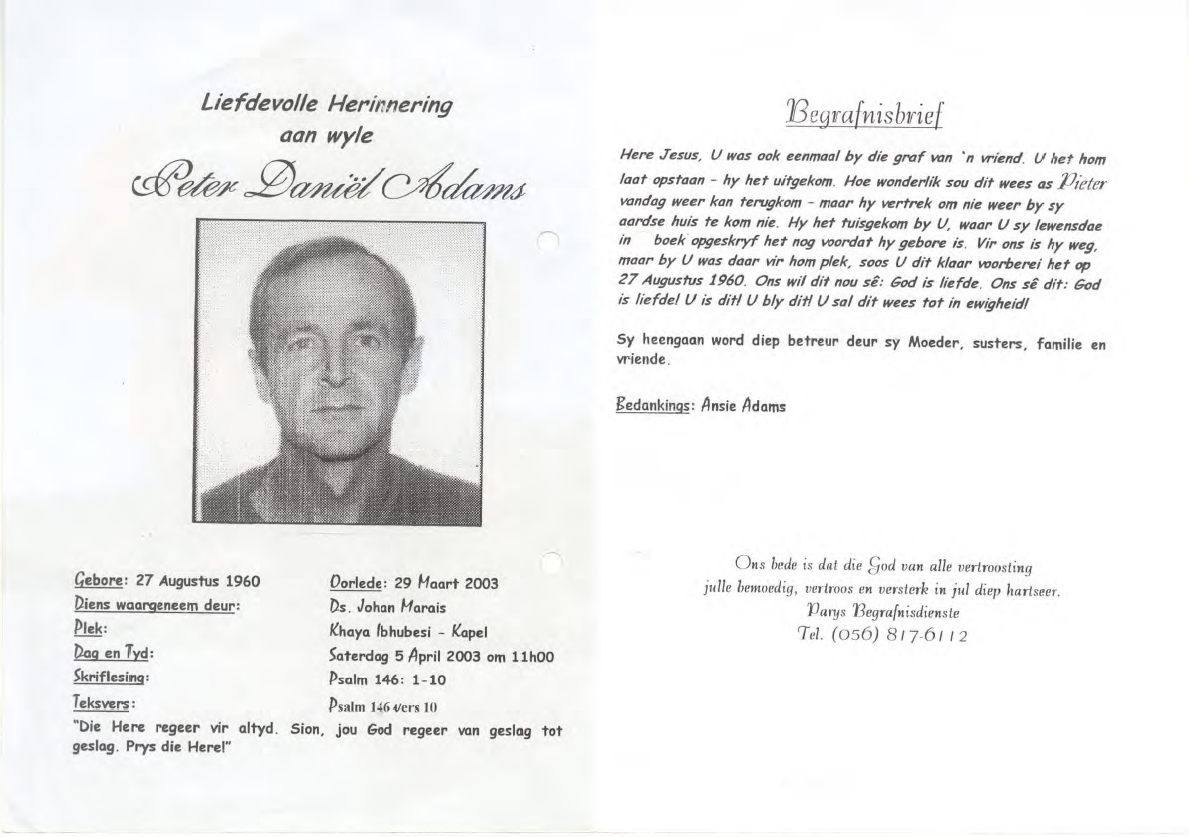 Liefdevolle Herinnering
aan wyle
Peter Daniël Adams
Gebore: 27 Augustus 1960 Oorlede: 29 Maart 2003
Diens waargeneem deur: Ds. Johan Marais
Plek: Khaya Ibhubesi - Kapel
Dag en Tyd: Saterdag 5 April 2003 om 11h00
Skriflesing: Psalm 146: 1-10
Teksvers: Psalm 146 vers 10
"Die Here regeer vir altyd. Sion, jou God regeer van geslag tot
geslag. Prys die Here!"
Begrafnisbrief
Here Jesus, U was ook eenmaal by die graf van 'n vriend. U het hom
laat opstaan - hy het uitgekom. Hoe wonderlik sou dit wees as Pieter
vandag weer kan terugkom - maar hy vertrek om nie weer by sy
aardse huis te kom nie. Hy het tuisgekom by U, waar U sy lewensdae
in boek opgeskryf het nog voordat hy gebore is. Vir ons is hy weg,
maar by U was daar vir hom plek, soos U dit klaar voorberei het op
27 Augustus 1960. Ons wil dit nou sê: God is liefde. Ons sê dit: God
is liefde! U is dit! U bly dit! U sal dit wees tot in ewigheid!
Sy heengaan word diep betreur deur sy Moeder, susters, familie en
vriende.
Bedankings: Ansie Adams
Ons bede is dat die God van alle vertroosting
julle bemoedig, vertroos en versterk in jul diep hartseer.
Parys Begrafnisdienste
Tel. (056) 817-6112